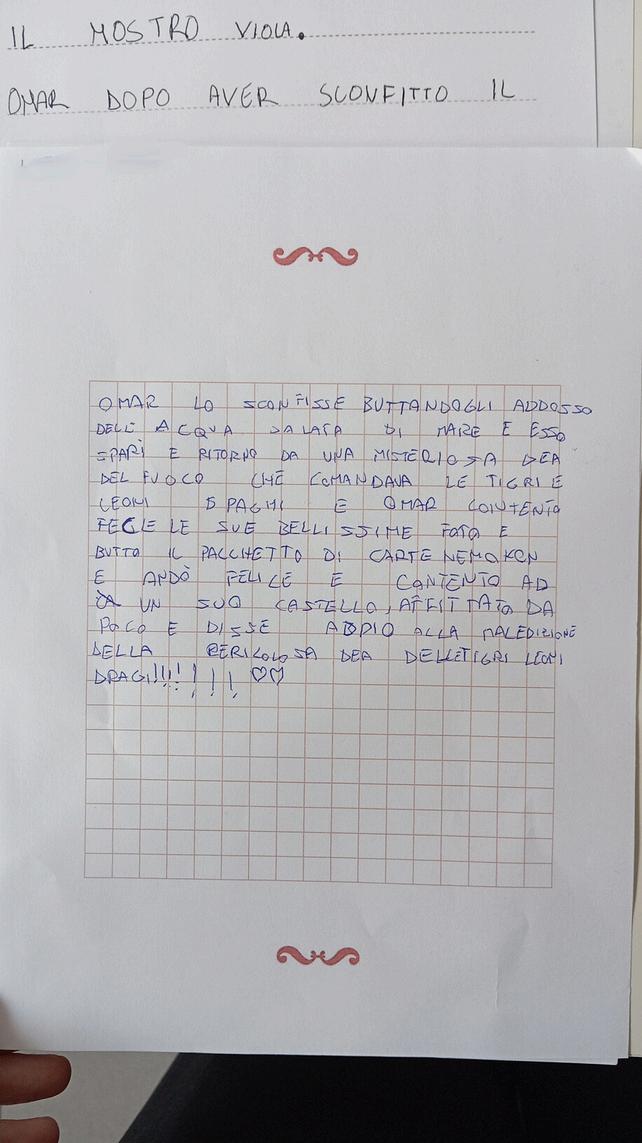 IL MOSTRO VIOLA.
OMAR DOPO AVER SCONFITTO IL
OMAR LO SCONFISSE BUTTANDOGLI ADDOSSO
DELL' ACQUA SALATA DI MARE E ESSO
SPARÌ E RITORNO DA UNA MISTERIOSA DEA
DEL FUOCO CHE COMANDAVA LE TIGRI E
LEONI E DRAGHI E OMAR CONTENTO
FECE LE SUE BELLISSIME FOTO E
BUTTO IL PACCHETTO DI CARTE NEMOKON
E ANDÒ FELICE E CONTENTO AD
UN SUO CASTELLO, AFFITTATO DA
POCO E DISSE ADDIO ALLA MALEDIZIONE
DELLA PERICOLOSA DEA DELLETIGRI LEONI
DRAGI!!!!!!! ♡♡